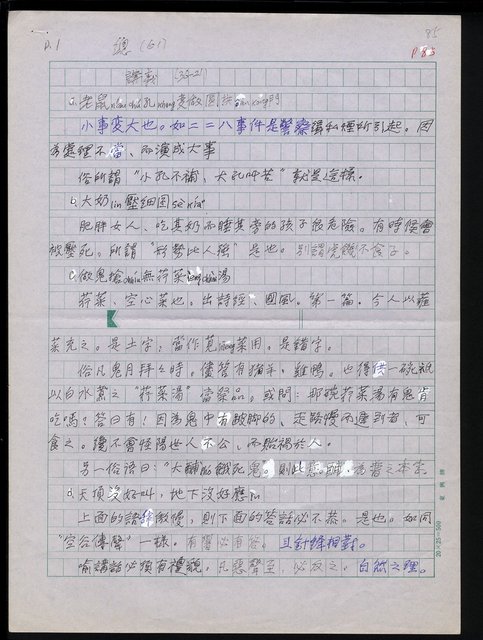 P.1 總(61) 85
P85
講義 (33-21)
a.老鼠 孔 變做圓拱 門
小事変大也。如二二八事件是警察謂私煙所引起。因
為處理不當、而演成大事
俗所謂“小孔不補、大孔叫苦”就是這樣。
b.大奶lin壓細囝
肥胖女人、吃其奶而睡其旁的孩子很危險。有時候會
被壓死。所謂“形勢比人強”是也。別謂虎毒不食子。
c.做鬼搶 無荇菜 湯
荇菜、空心菜也。出詩經、國風。第一篇。今人以蕹
菜充之。是土字；當作莧 菜用。是錯字。
俗凡鬼月拜々時。儘管有豬羊、雞鴨。也得供一碗
以白水煮之“荇菜湯”當祭品。或問：那碗荇菜湯有鬼肯
吃嗎？答曰有！因為鬼中有跛腳的、走路慢而遲到者、可
食之。纔不會怪陽世人不公、而貽禍於人。
另一俗語曰：“大 餓死鬼”。則此 為普之本來
d.天頂沒好叫，地下沒好應in
上面的話 傲慢，則下面的答話必不恭。是也。如同
“空谷傳聲”一樣。有響必有答。且針鋒相對。
喻講話必須有禮貌，凡惡聲至、必反之。自然之理。
20×25=500